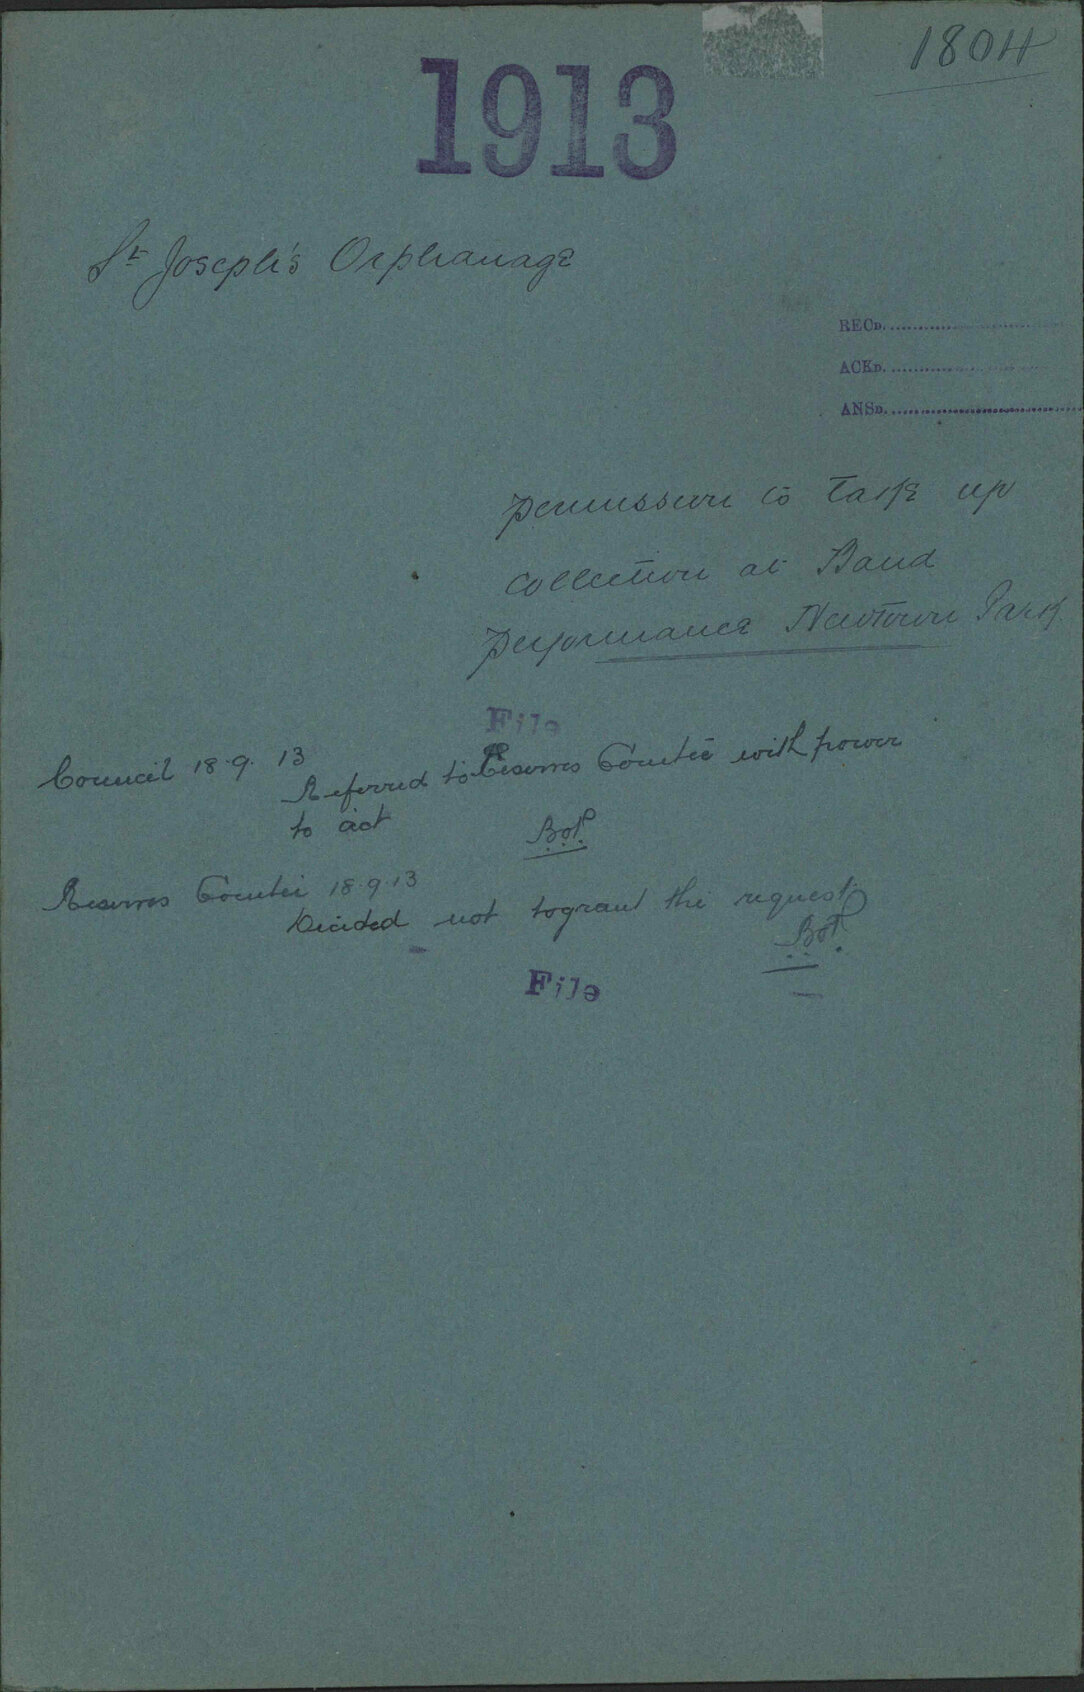 1804
1913
St Joseph's Orphanage
RECD.
ACKD.
ANSD.
Permission to take up
collection at Band
performance Newtown Park
File
Council 18.9.13
Referred to Reserves Comtee with power
to act
Reserves Comtee 18.9.13
Decided not to grant the request
File